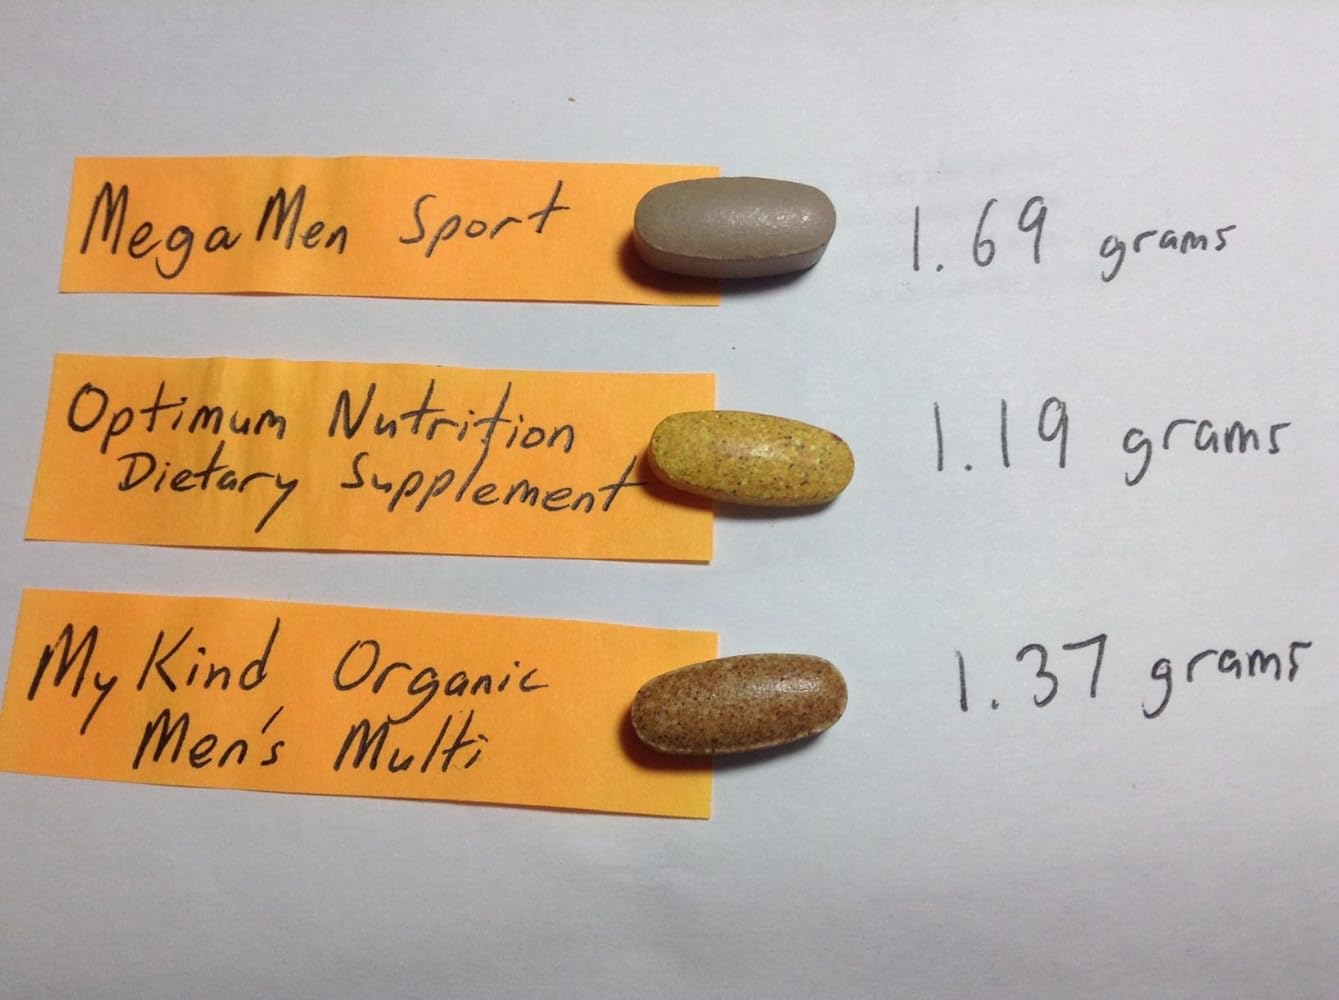 Mega Men Sport 1.69 grams
Optimum Nutrition
Dietary Supplement 1.19 grams
My Kind Organic
Men's Multi 1.37 grams